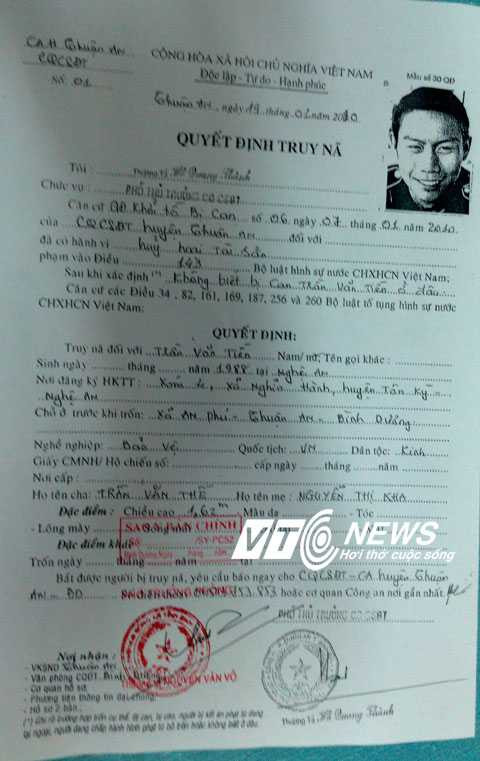 CA.H Thuận An
CQCSĐT
Số: 01
CỘNG HÒA XÃ HỘI CHỦ NGHĨA VIỆT NAM
Độc lập - Tự do - Hạnh phúc
Mẫu số 30 QĐ
Thuận An, ngày 19 tháng 01 năm 2010
QUYẾT ĐỊNH TRUY NÃ
Tôi : Thượng tá Quang Thành
Chức vụ : PHÓ THỦ TRƯỞNG CQ CSĐT
Căn cứ QĐ Khởi tố Bị Can số 06 ngày 07 tháng 01 năm 2010
của CQCSĐT huyện Thuận An đối với
đã có hành vi hủy hoại Tài Sản
phạm vào Điều 143 Bộ luật hình sự nước CHXHCN Việt Nam;
Sau khi xác định (*) Không biết bị Can Trần Văn Tiến ở đâu
Căn cứ các Điều 34, 82, 161, 169, 187, 256 và 260 Bộ luật tố tụng hình sự nước
CHXHCN Việt Nam;
QUYẾT ĐỊNH:
Truy nã đối với Trần Văn Tiến Nam/ nữ, Tên gọi khác :
Sinh ngày tháng năm 1988 tại Nghệ An
Nơi đăng ký HKTT : Xóm 4, xã Nghĩa Hành, huyện Tân Kỳ -
Nghệ An
Chỗ ở trước khi trốn: Xã An Phú - Thuận An - Bình Dương
Nghề nghiệp: Bảo Vệ Quốc tịch: VN Dân tộc: Kinh
Giấy CMNH/ Hộ chiếu số: cấp ngày tháng năm
Nơi cấp :
Họ tên cha: TRẦN VĂN THẾ Họ tên mẹ : NGUYỄN THỊ KHA
Đặc điểm : Chiều cao 1,62m Màu da - Tóc
- Lông mày
SAO Y BẢN CHÍNH
Số: /SY-PC52
VTC NEWS
Hơi thở cuộc sống
Đặc điểm khác
Trốn ngày tháng năm tại
Bắt được người bị truy nã, yêu cầu báo ngay cho CQCSĐT - CA huyện Thuận
An - BD 853 hoặc cơ quan Công an nơi gần nhất.
PHÓ THỦ TRƯỞNG CQ CSĐT
Nơi nhận :
- VKSND Thuận An
- Văn phòng CQĐT Bình Dương
- Cơ quan hồ sơ;
- Phương tiện thông tin đại chúng;
- Hồ sơ 2 bản.
NGUYỄN VĂN VÕ
Thượng tá Quang Thành